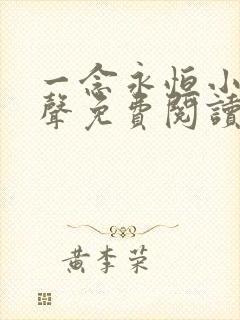 一念永恒小
聲免費閱讀
黃李荣